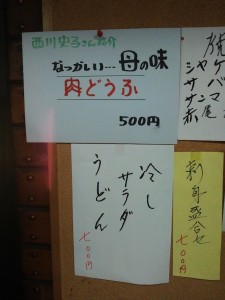 西川史子さん紹介
なつかしい…母の味
肉どうふ
500円
シャケ
サバ
サンマ
赤尾
冷し
サラダ
うどん
七00円
刺身盛合せ
七00円